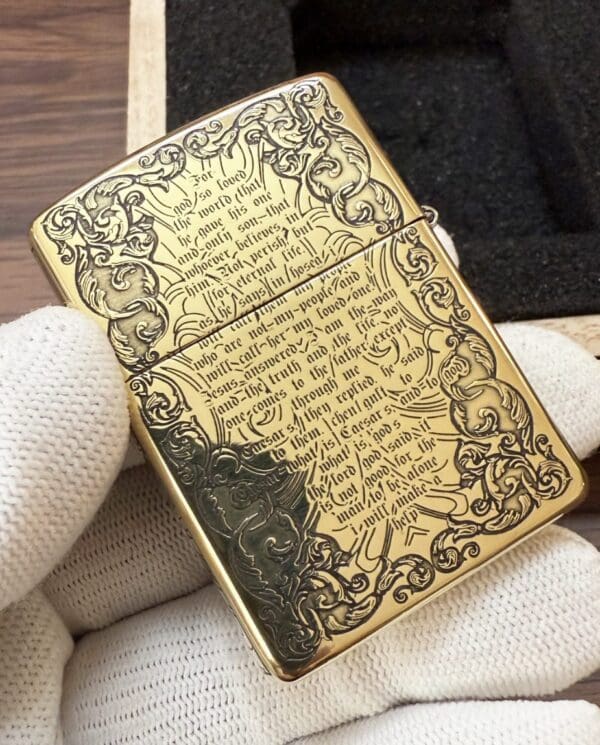 For
god so loved
the world that
he gave his one
and only son—that
whoever believes in
him Not perish but
for eternal life
as he says in hosea
will call them people
who are not—my—people and
will—call—her my loved one
Jesus answered I am the way
and—the truth and the life no
one comes to the father except
through me
Caesar's they replied he said
to them then
what is Caesar's and—to god
what is god's
the lord god said it
is not good for the
man to be alone
i will make a
help